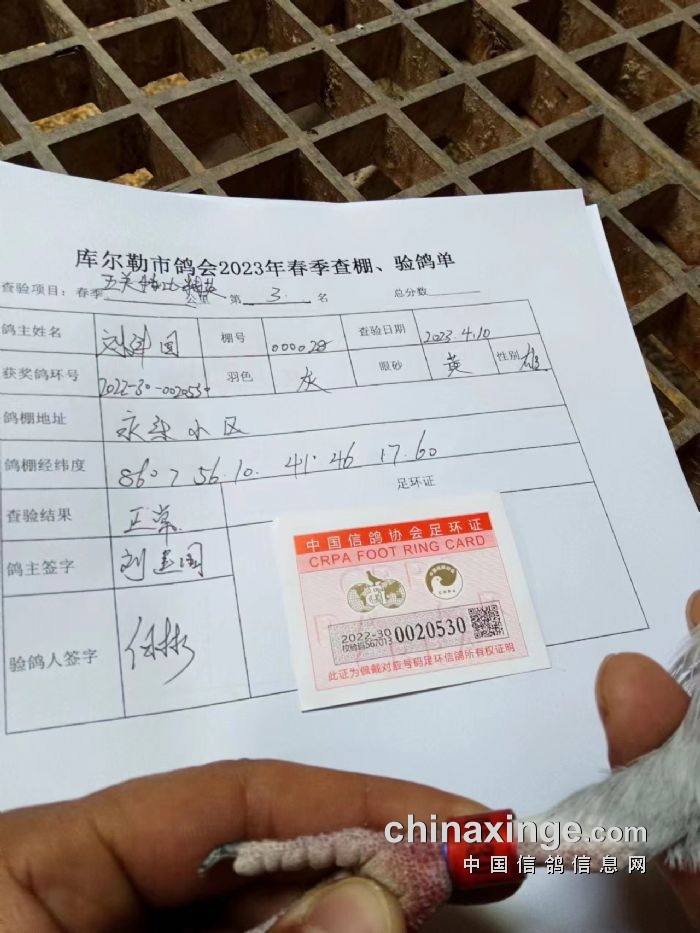 库尔勒市鸽会2023年春季查棚、验鸽单
查验项目：春季 五关 公里 第 3 名 总分数
鸽主姓名 刘建国 棚号 000028 查验日期 2023.4.10
获奖鸽环号 2022-30-002053 羽色 灰 眼砂 黄 性别 雄
鸽棚地址 小区
鸽棚经纬度 86.7 56.10. 41.46 17.60
查验结果 正常 足环证
鸽主签字 刘建国
验鸽人签字 任彬
中国信鸽协会足环证
CRPA FOOT RING CARD
2022-30 0020530
校验码567013
此证为佩戴对应号码足环信鸽所有权证明
chinaxinge.com
中国信鸽信息网